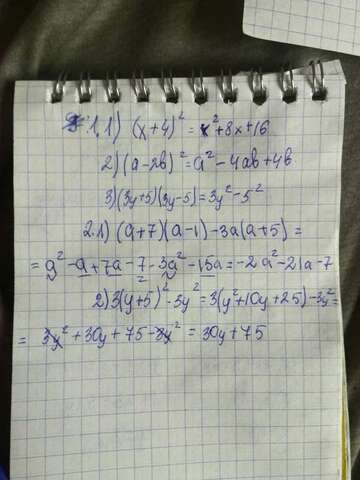 1.1) (x+4)² = x²+8x+16
2) (a-2b)² = a² - 4ab+4b
3) (3y+5)(3y-5)=3y²-5²
2.1) (a+7)(a-1)-3a(a+5) =
= a²-a+7a-7-3a²-15a = -2a²-21a-7
2) 3(y+5)²-3y² = 3(y²+10y+25)-3y² =
= 3y²+30y+75-3y² = 30y+75